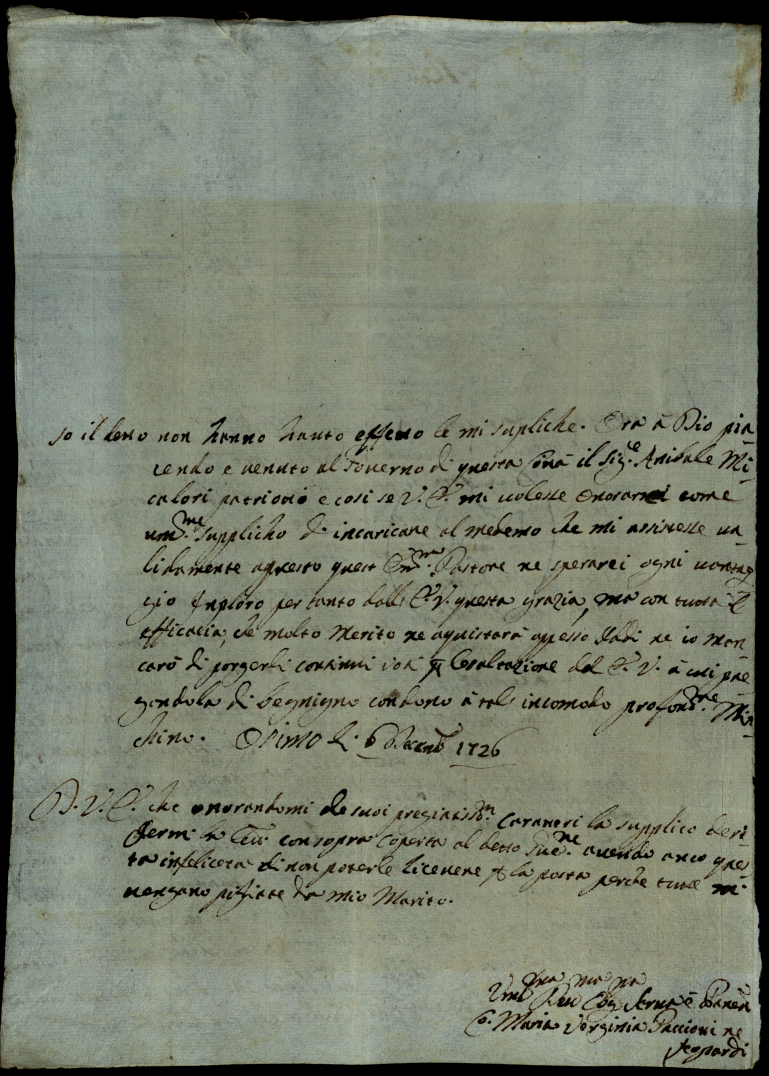 so il detto non hanno hauto effetto le mi supliche. Ora à Dio pia
cendo e venuto al Governo di questa Città il Sig.re Anibale Mi
calori patriono e cosi se V. E. mi volesse onorarmi come
um.me supplicho di incaricare al medemo che mi assistesse va
lidamente apresso quest Em.mo Pastore ne sperarei ogni vantag
gio Inploro per tanto dall E. V. questa grazia, ma con tutta l'
efficacia, che molto Merito ne aquistarà apresso Iddi ne io man
carò di porgerli continui voti p l'esaltazione del E. V. à cui pre
gandola di begnigno condono à tale incomodo profond.me M'in
chino. Osimo li 6 Decemb 1726
D. V. E. che onorandomi de suoi pregiatiss.mi caratteri la supplico deri
germi le con sopra coperta al detto avendo anco ques
ta infelicetà di non poterle ricevere p la posta perche tutte mi
vengano pigliate da mio Marito.
Um.ma Dev Obg Serva e Parente
C. Maria Verginia Paccioni ne
Leopardi